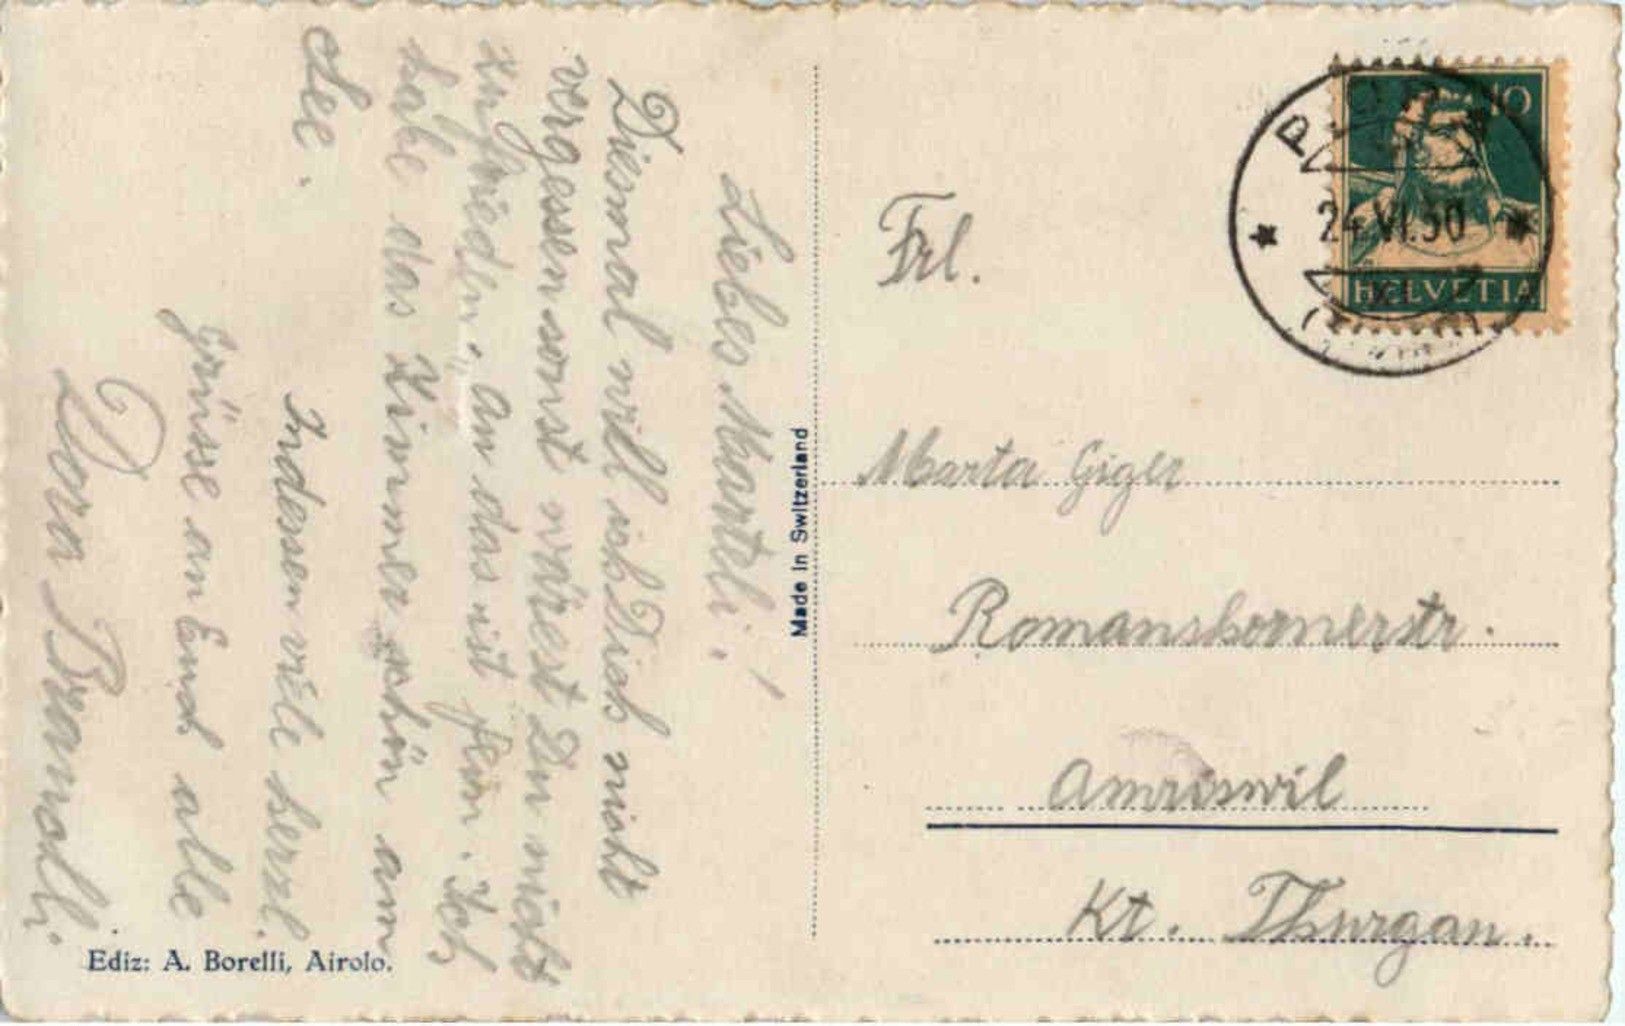 Liebes Marteli!
Diesmal will ich Dich nicht
vergessen sonst wärest Du nicht
zufrieden. Au das ist fein. Ich
habe das Zimmer schön am
See.
Indessen viele herzl.
Grüsse an Euch alle
Dora
Made in Switzerland
Ediz: A. Borelli, Airolo.
10
24.VI.30
HELVETIA
Frl.
Marta Giger
Romanshornerstr.
Amriswil
Kt. Thurgau.